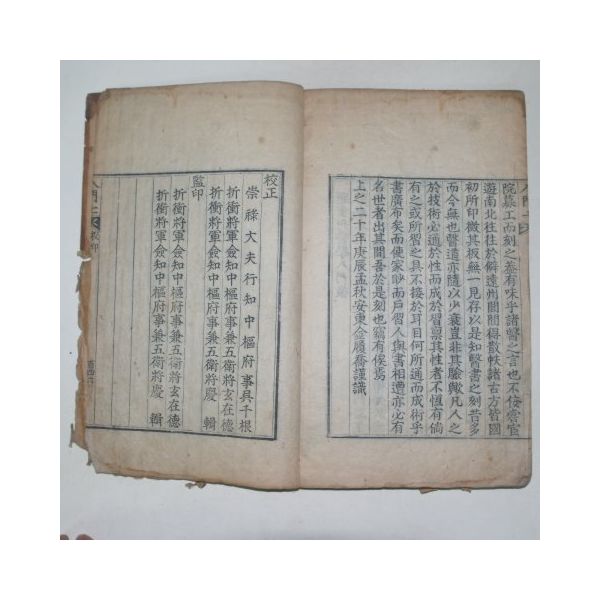 院募工而刻之蓋有味乎諸醫之言也不佞嘗宦
遊南北往往於僻遠州閭間得數帙諸古方皆國
初所印微其板無一見存以是知醫書之刻昔多
而今無也醫道亦隨以少衰豈非其驗歟凡人之
於技術必適於性而成於習稟其性者不恆有倘
有之或所習之具不接於耳目何所適而成術乎
書廣布矣而使家眇而戶習人與書相遭亦必有
名世者出其間吾於是刻也竊有俟焉
上之二十年庚辰孟秋安東金履喬謹識
校正
崇祿大夫行知中樞府事具千根
折衝將軍僉知中樞府事兼五衛將玄在德
折衝將軍僉知中樞府事兼五衛將慶 輯
監印
折衝將軍僉知中樞府事兼五衛將玄在德
折衝將軍僉知中樞府事兼五衛將慶 輯
入門
校印